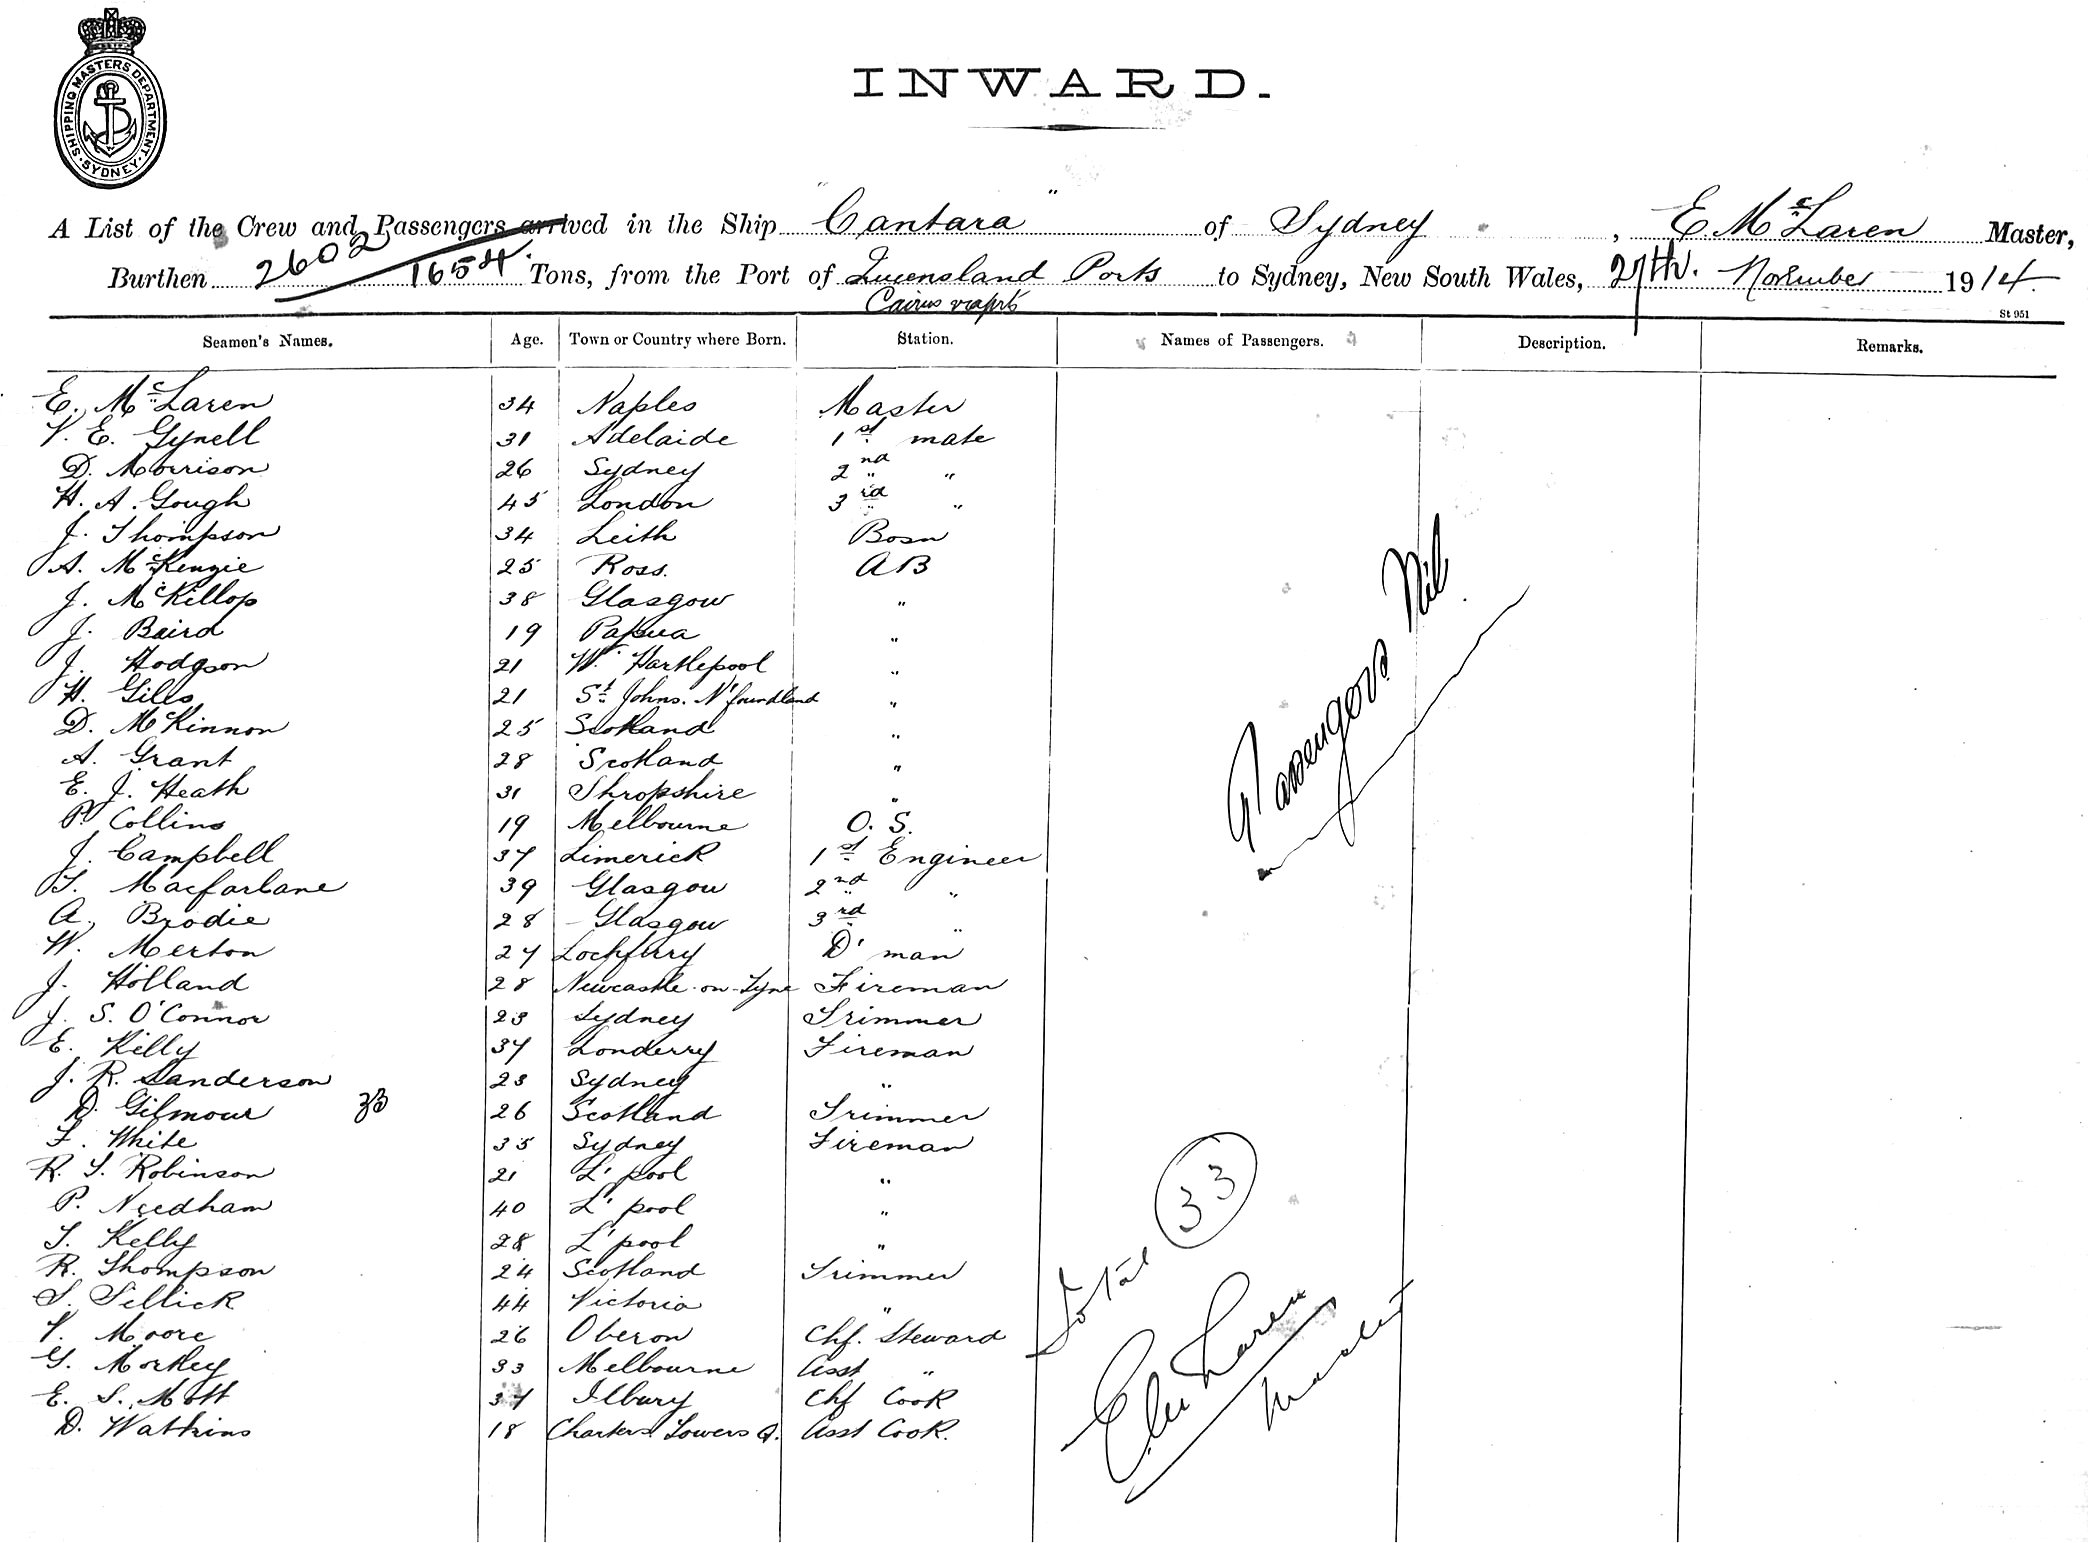 SHIPPING MASTERS DEPARTMENT · SYDNEY ·
INWARD.
A List of the Crew and Passengers arrived in the Ship "Cantara" of Sydney, E. McLaren Master,
Burthen 2602 1654 Tons, from the Port of Queensland Ports to Sydney, New South Wales, 27th. November 1914.
Cairns
St 951
Seamen's Names. Age. Town or Country where Born. Station. Names of Passengers. Description. Remarks.
E. McLaren 34 Naples Master
V. E. Gynell 31 Adelaide 1st mate
D. Morrison 26 Sydney 2nd "
H. A. Gough 45 London 3rd "
J. Thompson 34 Leith Bosn
A. McKenzie 25 Ross. AB
J. McKillop 38 Glasgow "
J. Baird 19 Papua "
J. Hodgson 21 W. Hartlepool "
H. Giles 21 St. Johns. N'foundland "
D. McKinnon 25 Scotland "
A. Grant 28 Scotland "
E. J. Heath 31 Shropshire "
P. Collins 19 Melbourne O. S.
J. Campbell 37 Limerick 1st Engineer
T. Macfarlane 39 Glasgow 2nd "
A. Brodie 28 Glasgow 3rd "
W. Merton 27 D' man
J. Holland 28 Newcastle-on-Tyne Fireman
J. S. O'Connor 23 Sydney Trimmer
E. Kelly 37 Londerry Fireman
J. R. Sanderson 23 Sydney "
D. Gilmour 33 26 Scotland Trimmer
F. White 35 Sydney Fireman
R. S. Robinson 21 L'pool "
P. Needham 40 L'pool "
T. Kelly 28 L'pool "
R. Thompson 24 Scotland Trimmer
S. Sellick 44 Victoria "
V. Moore 26 Oberon Chf. Steward
G. Morkey 33 Melbourne Asst "
E. S. Mott 37 Ilbury Chf Cook
D. Watkins 18 Charters Towers Q. Asst Cook.
Passengers Nil
Total 33
E McLaren
Master